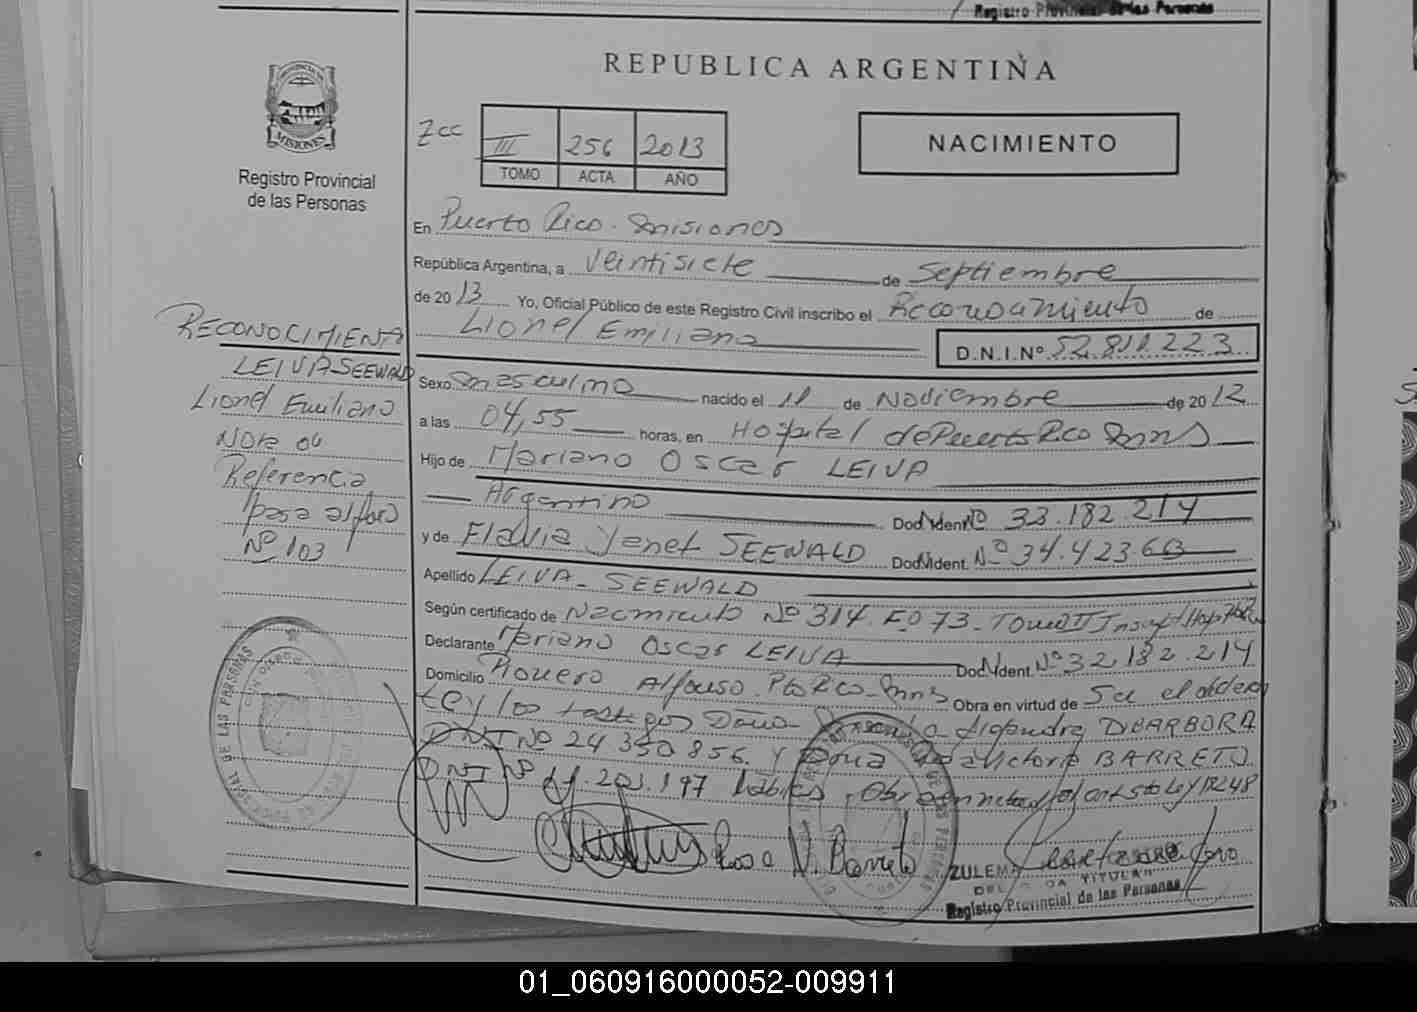 Registro Provincial de las Personas
REPUBLICA ARGENTINA
MISIONES
Registro Provincial
de las Personas
Zcc
III 256 2013
TOMO ACTA AÑO
NACIMIENTO
En Puerto Rico. Misiones
República Argentina, a Veintisiete de Septiembre
de 2013 Yo, Oficial Público de este Registro Civil inscribo el Reconocimiento de
Lionel Emiliano
D.N.I.Nº 52.811.223
Sexo Masculino nacido el 11 de Noviembre de 2012
a las 04,55 horas, en Hospital de Puerto Rico Mnes
Hijo de Mariano Oscar LEIVA
Argentino Doc. Ident. Nº 33.182.214
y de Flavia Yanet SEEWALD Doc. Ident. Nº 34.423.
Apellido LEIVA - SEEWALD
Según certificado de Nacimiento Nº 314. Fº 73. Tomo II
Declarante Mariano Oscar LEIVA Doc. Ident. Nº 32.182.214
Domicilio Pionero Alfonso. Pto Rico. Mnes Obra en virtud de Su
Ley los testigos Doña DBARBORA
DNI Nº 24 350 856. Y Doña BARRETO
DNI Nº 197 habiles
RECONOCIMIENTO
LEIVA SEEWALD
Lionel Emiliano
Nota
Referencia
para
Nº 103
Rosa V. Barreto
ZULEMA
DELEGADA TITULAR
Registro Provincial de las Personas
01_060916000052-009911